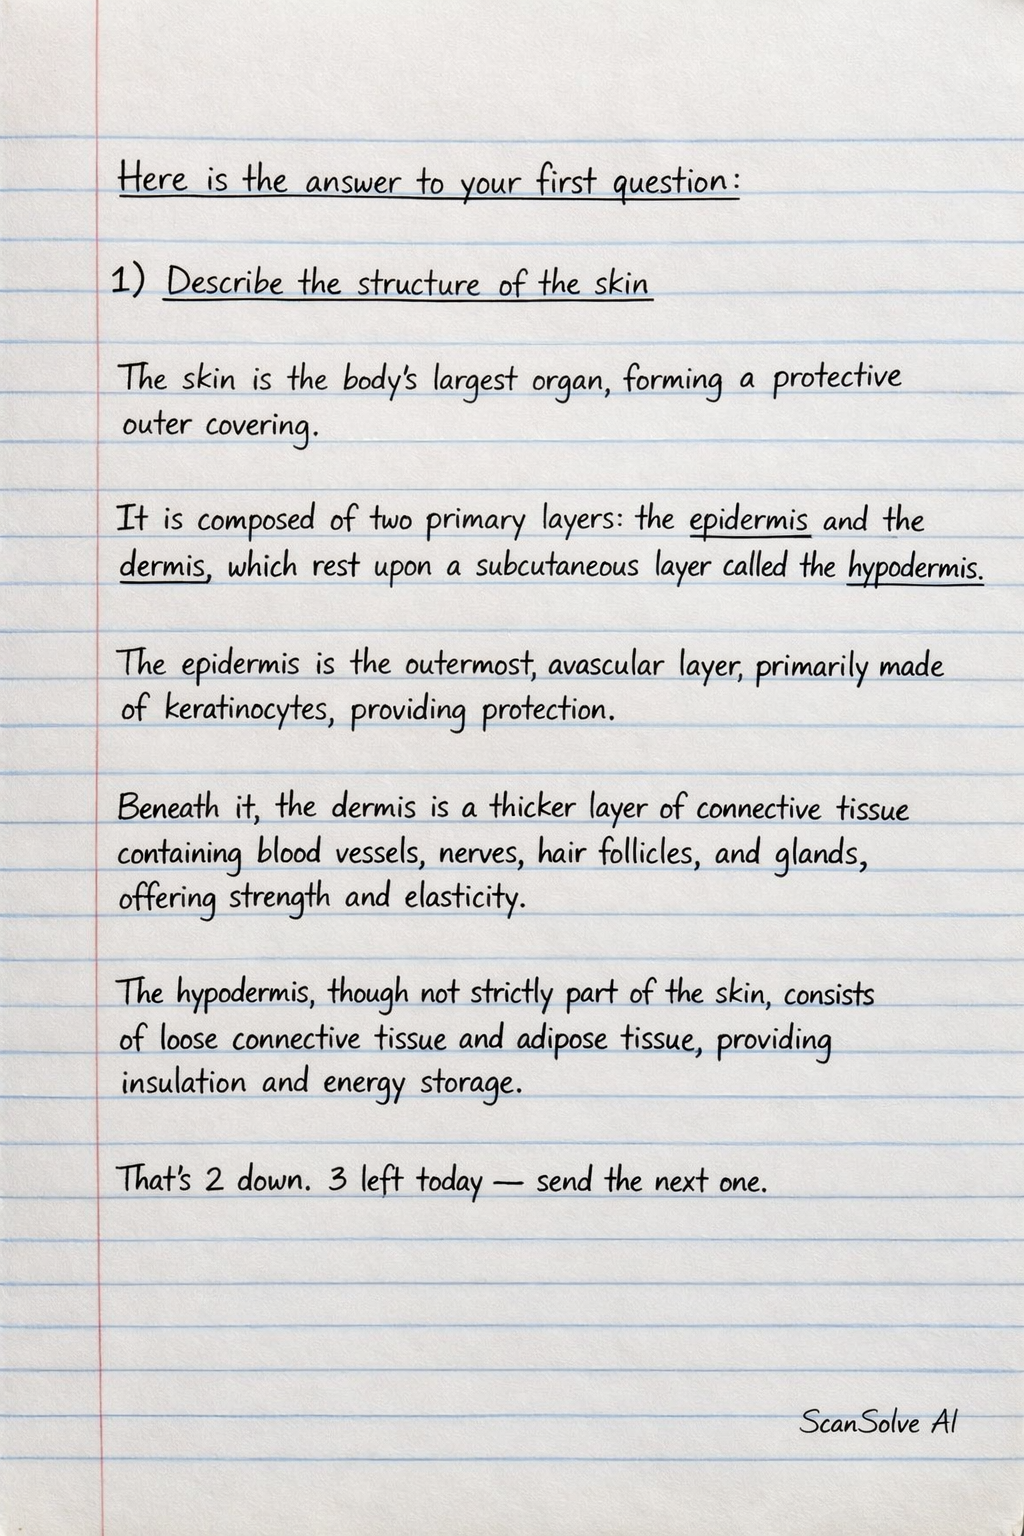 Here is the answer to your first question:
1) Describe the structure of the skin
The skin is the body's largest organ, forming a protective
outer covering.
It is composed of two primary layers: the epidermis and the
dermis, which rest upon a subcutaneous layer called the hypodermis.
The epidermis is the outermost, avascular layer, primarily made
of keratinocytes, providing protection.
Beneath it, the dermis is a thicker layer of connective tissue
containing blood vessels, nerves, hair follicles, and glands,
offering strength and elasticity.
The hypodermis, though not strictly part of the skin, consists
of loose connective tissue and adipose tissue, providing
insulation and energy storage.
That's 2 down. 3 left today — send the next one.
ScanSolve AI